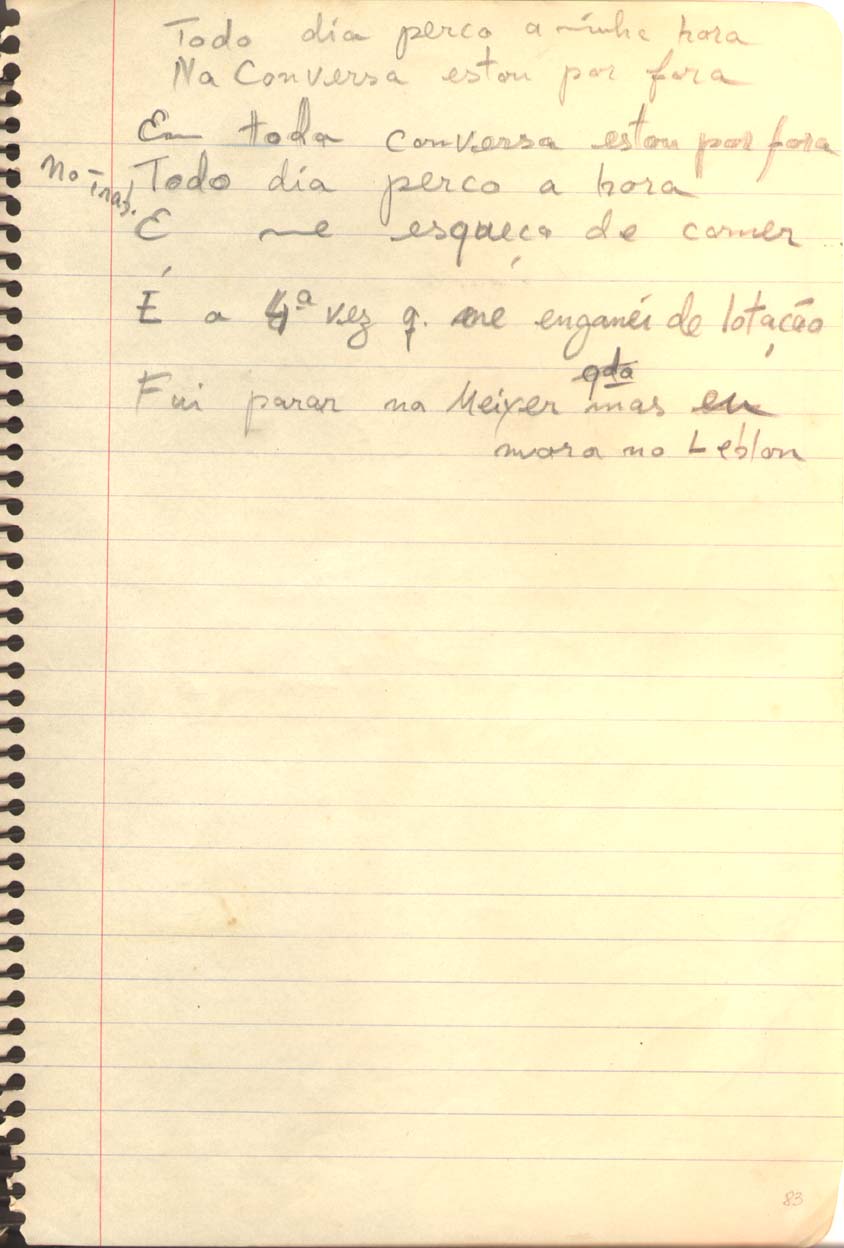 Todo dia perco a minha hora
Na Conversa estou por fora
Em toda conversa estou por fora
No Todo dia perco a hora
E me esqueço de comer
É a 4ª vez q. me enganei de lotação
qdo
Fui parar no Meyer mas eu
moro no Leblon
83